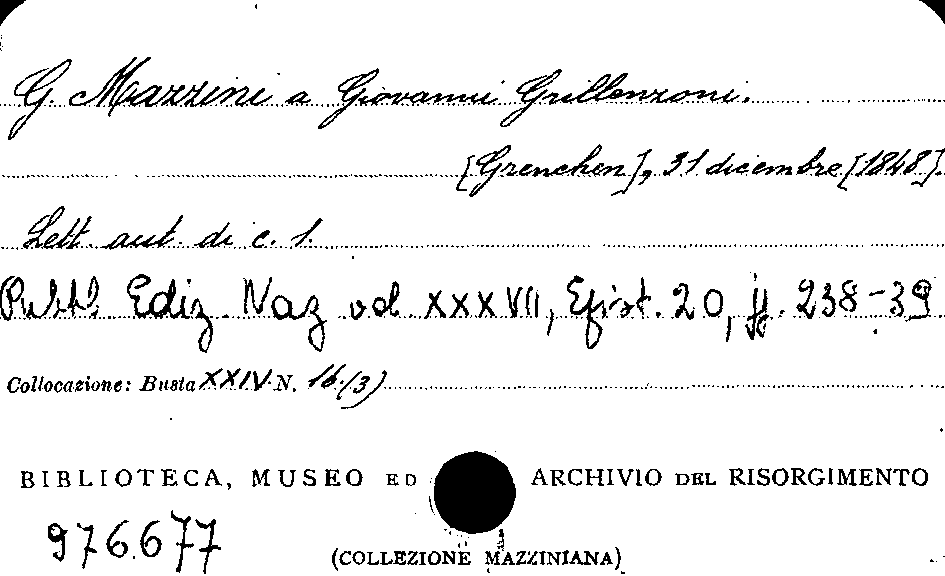 G. Mazzini a Giovanni Grillenzoni.
[Grenchen], 31 dicembre [1848].
Lett. aut. di c. 1.
Pubbl. Ediz. Naz vol XXXVII, Epist. 20, pp. 238-39
Collocazione: Busta XXIV N. 16/(3)
BIBLIOTECA, MUSEO ED ARCHIVIO DEL RISORGIMENTO
976.677
(COLLEZIONE MAZZINIANA)